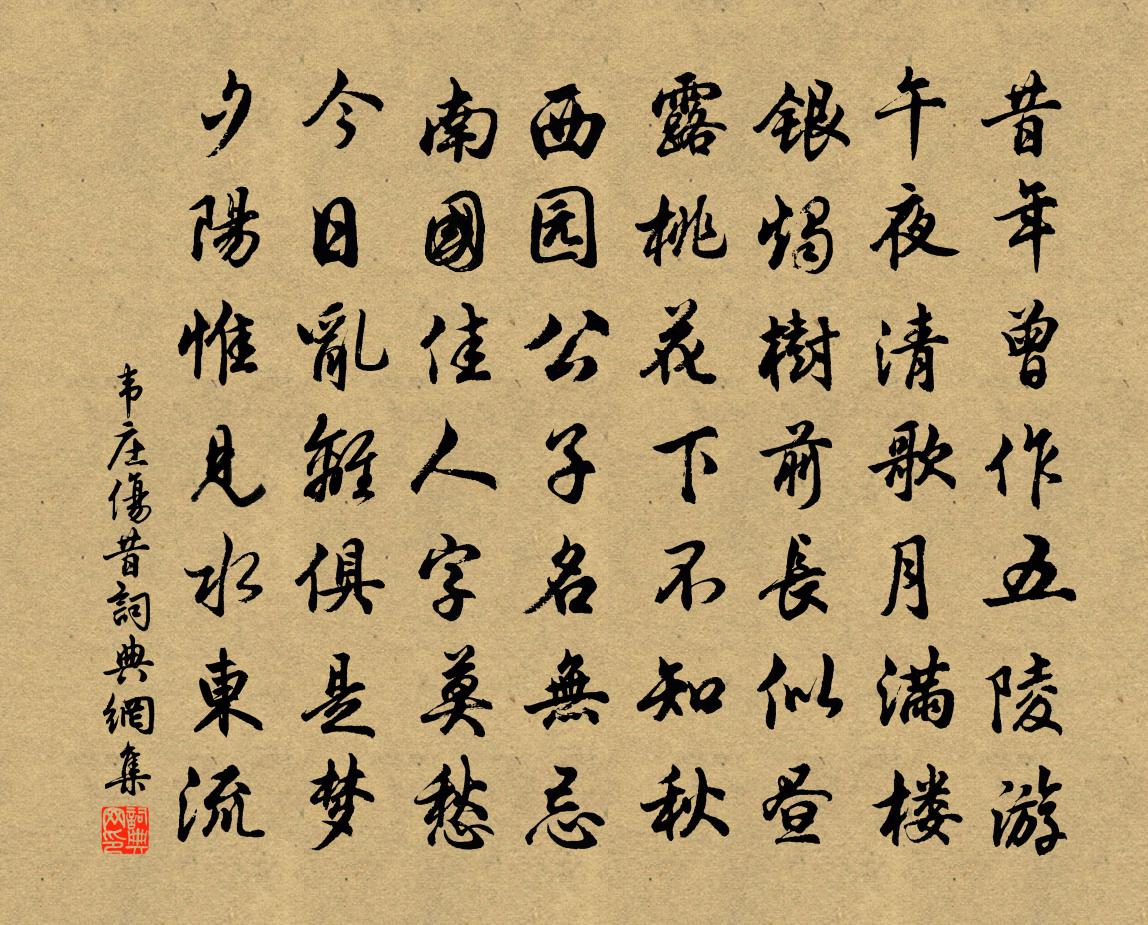 昔年曾作五陵游
午夜清歌月满楼
銀燭樹前長似昼
露桃花下不知秋
西园公子名無忌
南國佳人字莫愁
今日亂離俱是梦
夕陽惟見水東流
韦庄傷昔詞典網集
詞典网印